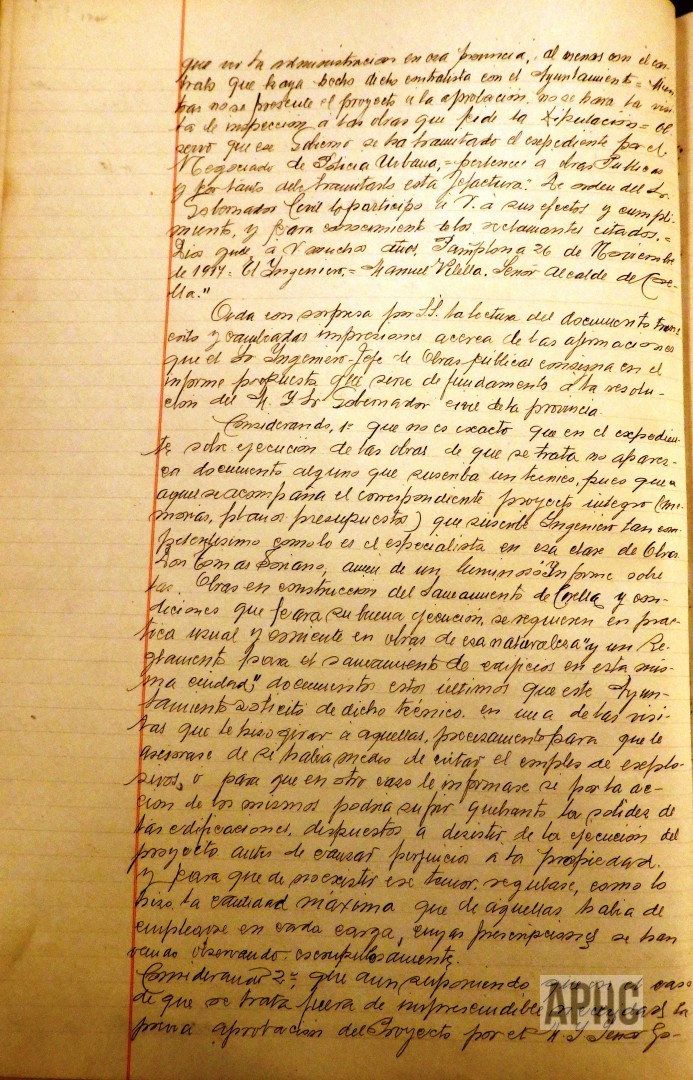 que ver la administracion en esa provincia, al menos con el con-
trato que haya hecho dicho contratista con el Ayuntamiento = Mien-
tras no se presente el proyecto a la aprobacion no se hara la visi-
ta de inspección a las obras que pide la Diputacion = Ob-
servo que ese Gobierno se ha tramitado el expediente por el
Negociado de Policia Urbana, = pertenece a obras Publicas
y por tanto debe tramitarlo esta Jefactura." De orden del Sr.
Gobernador Civil lo participo a V. á sus efectos y cumpli-
miento, y para conocimiento de los reclamantes citados. =
Dios gude á V muchos años. Pamplona 26 de Noviembre
de 1917 = El Ingeniero, = Manuel Velella. Señor Alcalde de Core-
lla."
Oida con sorpresa por SS. la lectura del documento trans-
crito y cambiadas impresiones acerca de las afirmaciones
que el Sr Ingeniero-Jefe de Obras publicas consigna en el
informe propuesta que sirve de fundamento a la resolu-
cion del M. Y Sr Gobernador civil de la provincia.
Considerando, 1º que no es exacto que en el expedien-
te sobre ejecución de las obras de que se trata no apares-
ca documento alguno que suscriba un técnico, pues que a
aquel se acompaña el correspondiente proyecto integro (me-
morias, planos presupuestos) que suscribe Ingeniero tan com-
petentisimo como lo es el especialista en esa clase de Obras
Don Tomas Soriano, amen de un luminoso "Informe sobre
las Obras en construccion del Saneamiento de Corella y con-
diciones que para su buena ejecución se requieren en prac-
tica usual y corriente en obras de esa naturaleza" y un Re-
glamento para el saneamiento de edificios en esta mis-
ma ciudad," documentos estos ultimos que este Ayun-
tamiento solicitó de dicho técnico en una de las visi-
tas que le hizo girar á aquellas, precisamente para que le
asesorase de si habia medio de evitar el empleo de explo-
sivos, o para que en otro caso le informase se por la ac-
cion de los mismos podria sufrir quebranto la solidez de
las edificaciones, dispuestos a desistir de la ejecución del
proyecto antes de causar perjuicios a la propiedad
y para que de no existir ese temor regulase, como lo
hizo la cantidad máxima que de aquellas habia de
emplearse en cada carga, cuyas prescripciones se han
venido observando escrupulosamente.
Considerando 2º, que aun suponiendo que en el caso
de que se trata fuera de imprescindible necesidad la
previa aprobacion del Proyecto por el M. Y Señor Go-
APHC